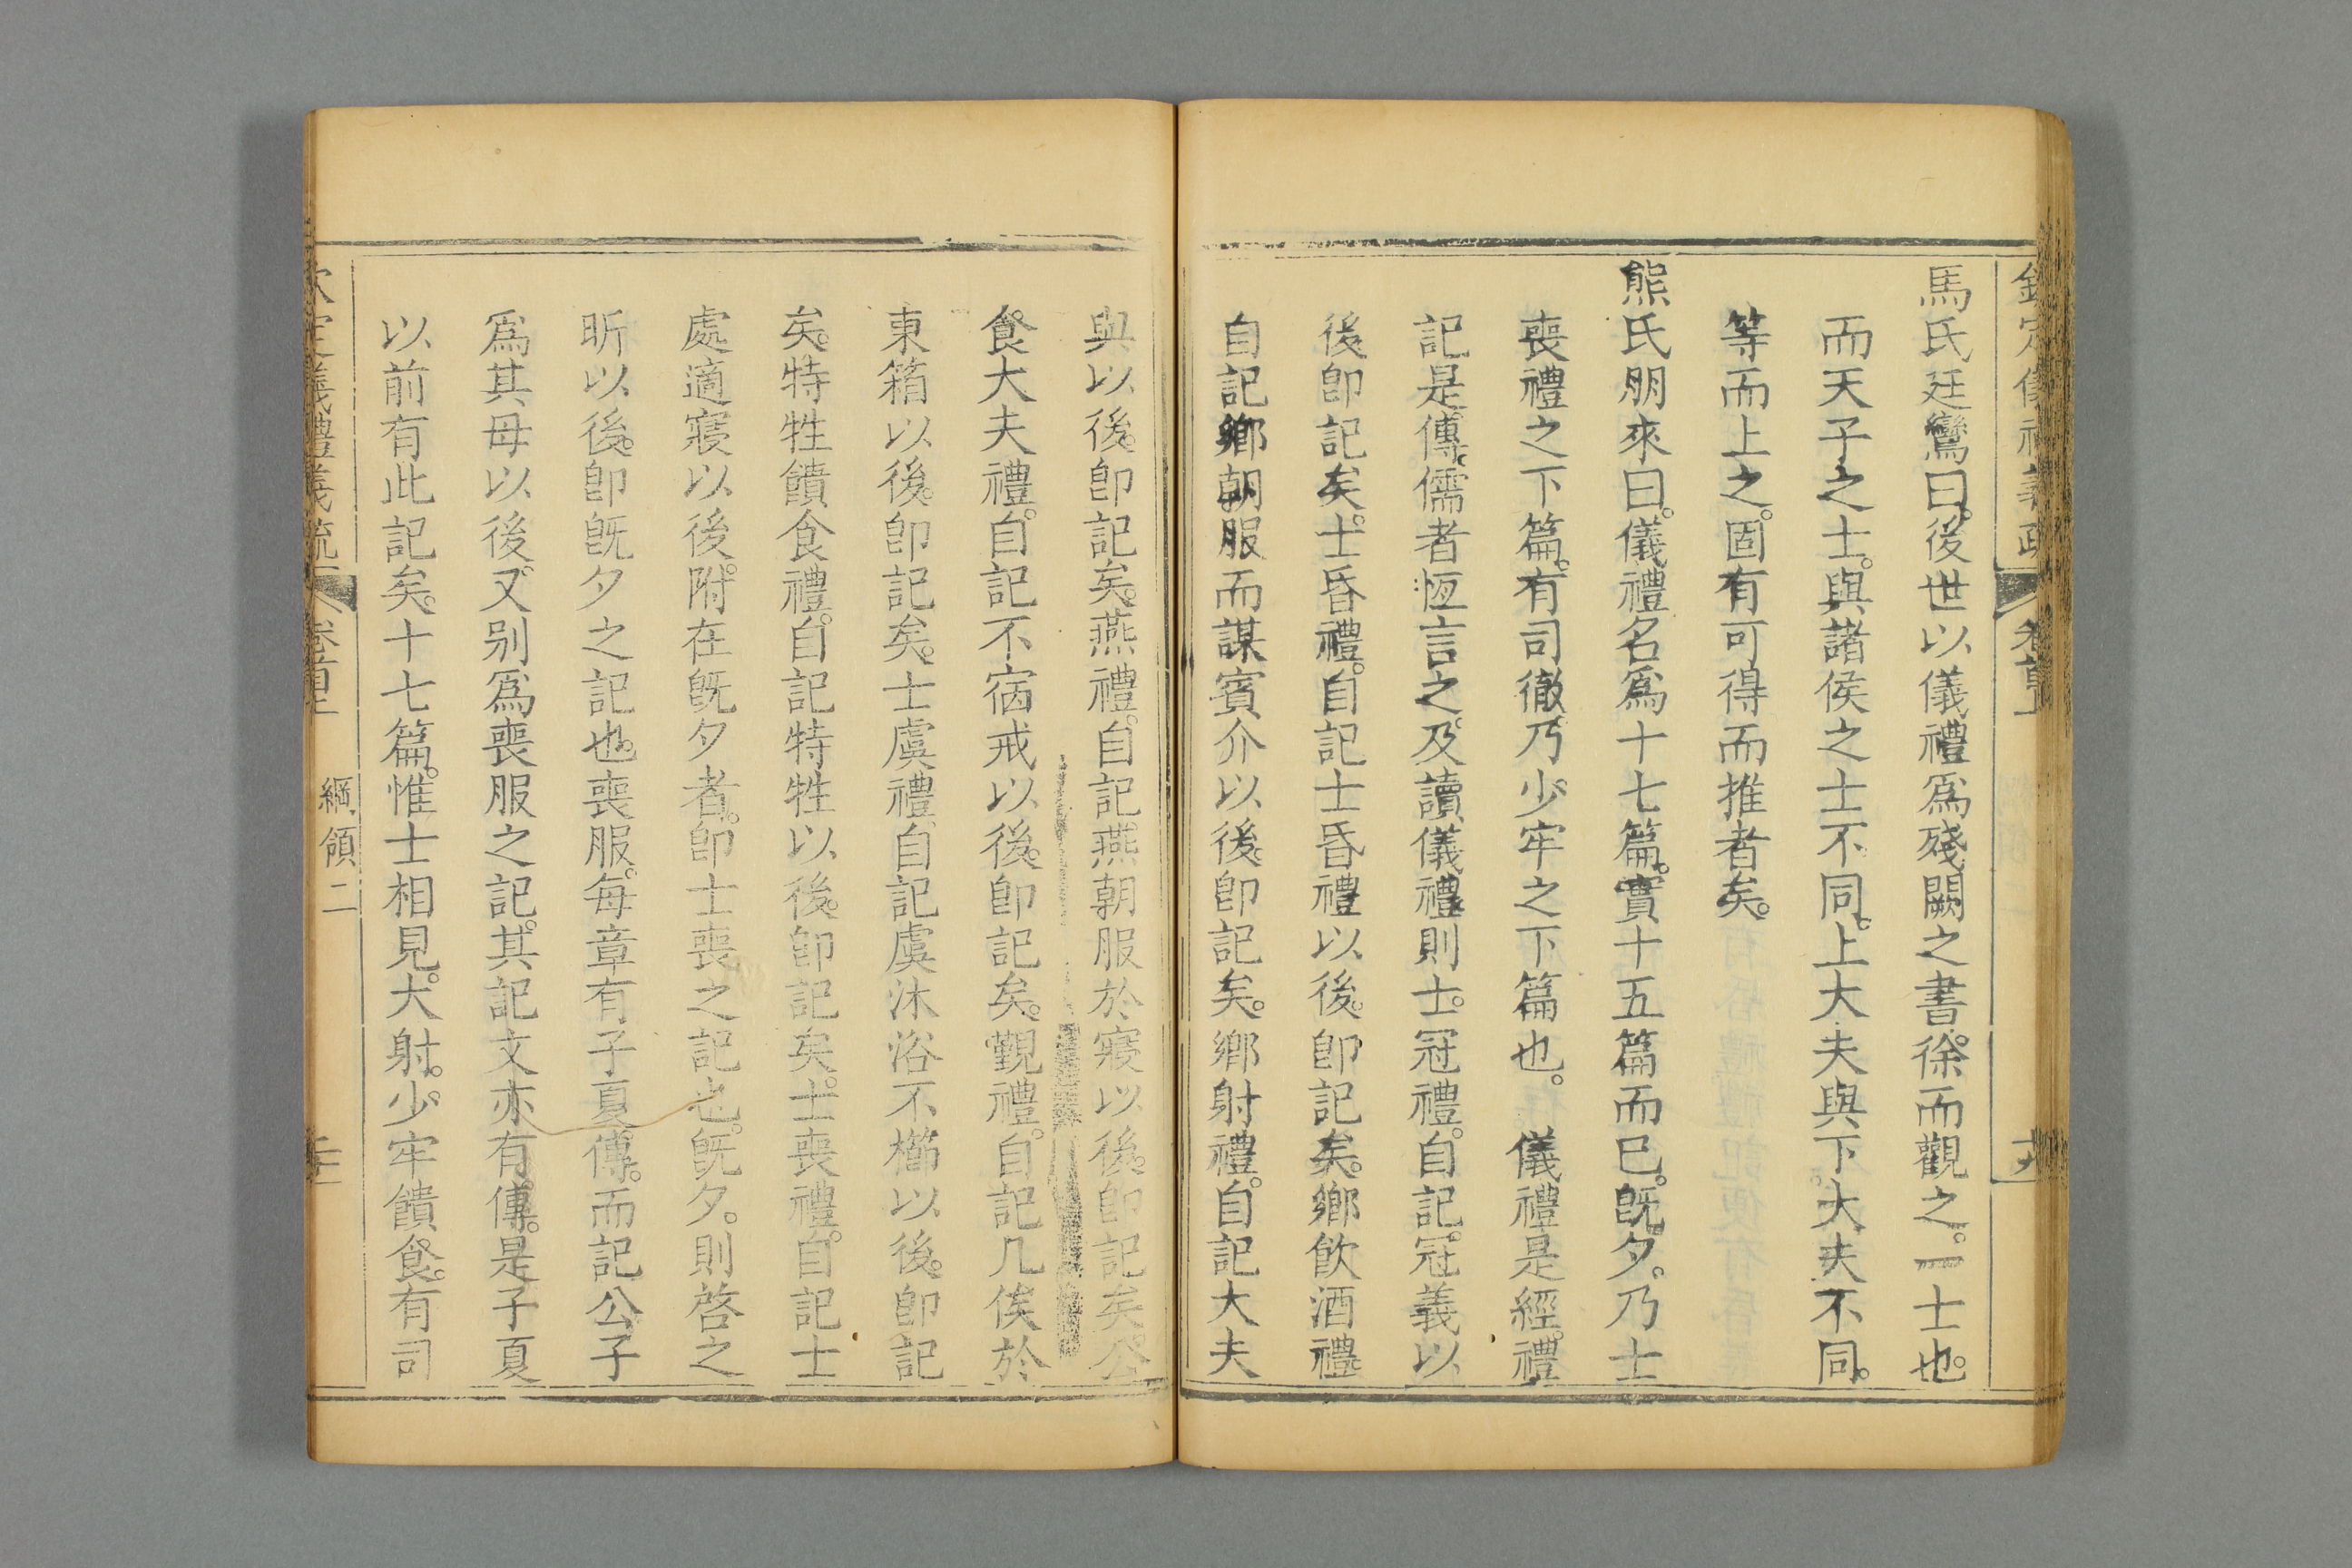 馬氏廷鸞曰。後世以儀禮爲殘闕之書。徐而觀之。一士也。
而天子之士。與諸侯之士不同。上大夫與下大夫不同。
等而上之。固有可得而推者矣。
熊氏朋來曰。儀禮名爲十七篇。實十五篇而已。旣夕。乃士
喪禮之下篇。有司徹。乃少牢之下篇也。　儀禮是經。禮
記是傳。儒者恆言之。及讀儀禮則士冠禮。自記。冠義以
後。卽記矣。士昏禮。自記士昏禮以後。卽記矣。鄉飲酒禮。
自記鄉。朝服而謀賓介以後。卽記矣。鄉射禮。自記大夫
與以後。卽記矣。燕禮。自記。燕朝服於寢以後。卽記矣。公
食大夫禮。自記不宿戒以後。卽記矣。覲禮。自記几俟於
東箱以後。卽記矣。士虞禮。自記虞沐浴不櫛以後。卽記
矣。特牲饋食禮。自記特牲以後。卽記矣。士喪禮。自記士
處適寢以後。附在旣夕者。卽士喪之記也。旣夕。則啓之
昕以後。卽旣夕之記也。喪服。每章有子夏傳。而記公子
爲其母以後。又別爲喪服之記。其記文亦有傳。是子夏
以前有此記矣。十七篇。惟士相見。大射。少牢饋食。有司
綱領二